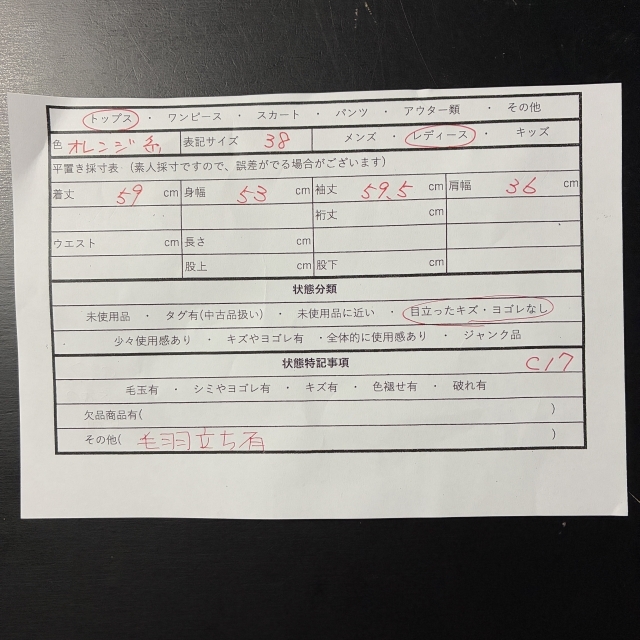 トップス ・ ワンピース ・ スカート ・ パンツ ・ アウター類 ・ その他
色 オレンジ系 表記サイズ 38 メンズ ・ レディース ・ キッズ
平置き採寸表 (素人採寸ですので、誤差がでる場合がございます)
着丈 59 cm 身幅 53 cm 袖丈 59.5 cm 肩幅 36 cm
裄丈 cm
ウエスト cm 長さ cm
股上 cm 股下 cm
状態分類
未使用品 ・ タグ有(中古品扱い) ・ 未使用品に近い ・ 目立ったキズ・ヨゴレなし
少々使用感あり ・ キズやヨゴレ有 ・全体的に使用感あり ・ ジャンク品
状態特記事項 C17
毛玉有 ・ シミやヨゴレ有 ・ キズ有 ・ 色褪せ有 ・ 破れ有
欠品商品有( )
その他( 毛羽立ち有 )